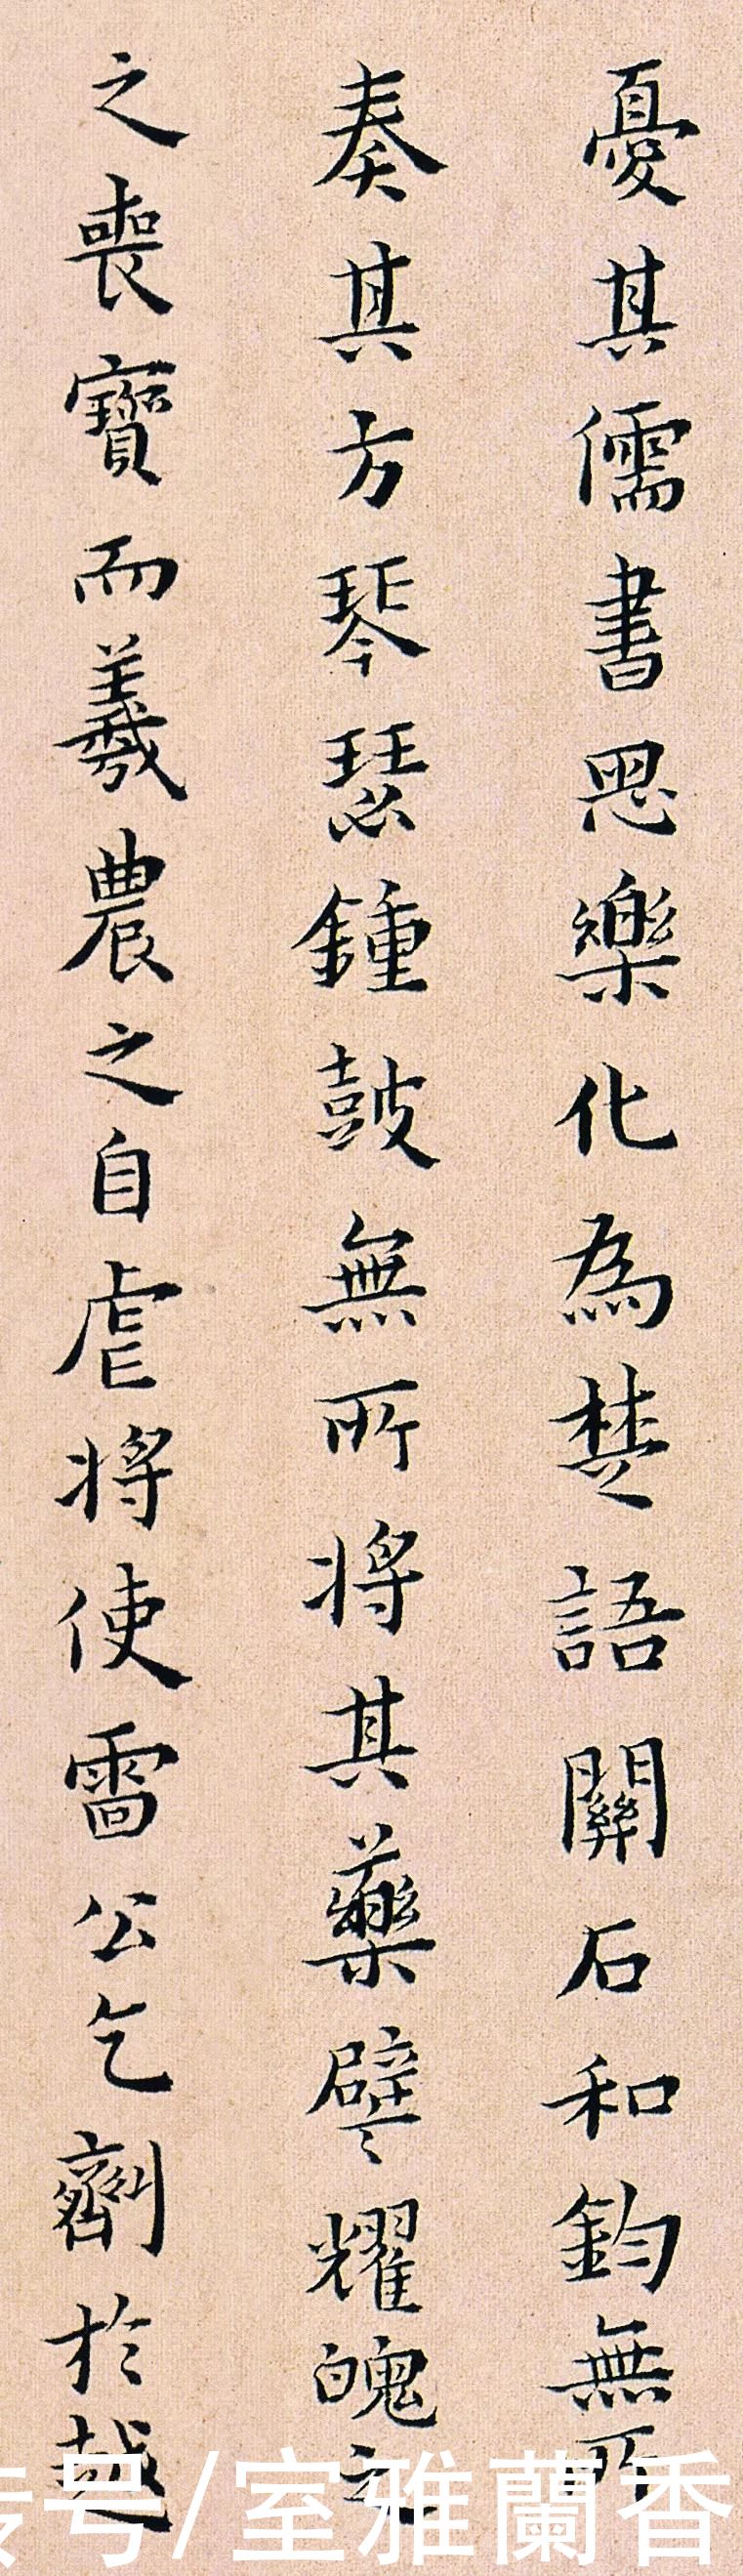 憂其儒書思樂化為楚語關石和鈞無所
奏其方琴瑟鍾鼓無所將其藥璧耀魄之
之喪寶而羲農之自虐將使雷公乞劑於越
号/室雅蘭香